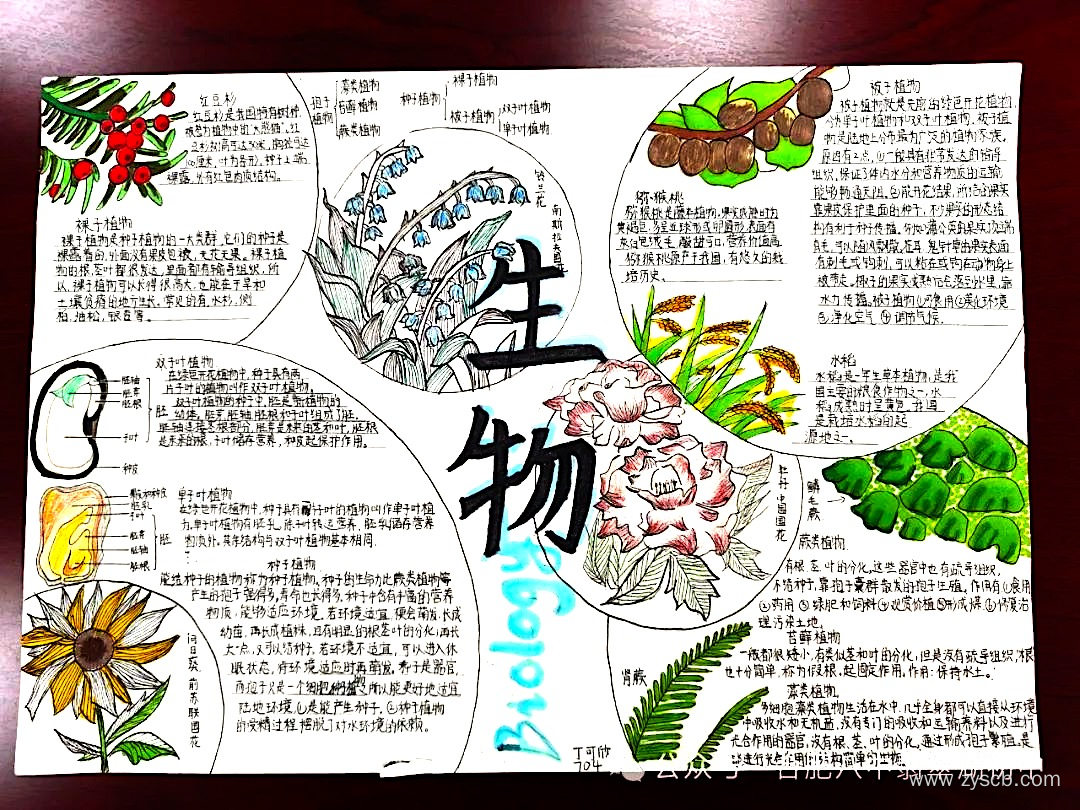 红豆杉
红豆杉是我国特有树种,
被誉为植物中的“大熊猫”。红
豆杉树高可达30米,胸径可达
裸露,外有红色肉质结构。
裸子植物
裸子植物是种子植物的一大类群,它们的种子是
裸露着的,外面没有果皮包被,无花无果。裸子植
物的根、茎、叶都很发达,里面都有输导组织,所
以,裸子植物可以长得很高大,也能在干旱和
土壤贫瘠的地方生长。常见的有,水杉,侧
柏,油松,银杏等。
孢子植物
藻类植物
苔藓植物
蕨类植物
种子植物
裸子植物
被子植物
双子叶植物
单子叶植物
铃兰花
南斯拉夫国花
猕猴桃
猕猴桃是藤本植物,果实成熟时为
黄褐色,多呈近球形或卵圆形,表面有
灰白色绒毛,酸甜可口,营养价值高
猕猴桃原产于我国,有悠久的栽
培历史。
被子植物
被子植物就是无席的绿色开花植物,
分为单子叶植物和双子叶植物。被子植
物是陆地上分布最为广泛的植物家族。
原因有2点,①一般具有非常发达的输导
组织,保证了体内水分和营养物质的运输
能够畅通无阻,包能开花结果,所结的果实
靠果皮保护里面的种子,不少果实的形态结
构有利于种子传播。例如:蒲公英的果实顶端
毛,可以随风飘散,苍耳、鬼针草的果实表面
有刺毛或钩刺,可以粘在或钩在动物身上
水力传播。被子植物①可食用②美化环境
③净化空气④调节气候.
水稻
水稻是一年生草本植物,是我
国主要的粮食作物之一,水
稻成熟时呈黄色,我国
是栽培水稻的起
源地之一。
双子叶植物
在绿色开花植物中,种子具有两
片子叶的植物叫作双子叶植物。
双子叶植物的种子中,胚是新植物的
幼体,胚芽、胚轴、胚根和子叶组成了胚。
胚轴连接茎根部分,胚芽是未来的茎和叶,胚根
是未来的根,子叶储存营养,种皮起保护作用。
胚轴
胚芽
胚根
胚
子叶
种皮
单子叶植物
在绿色开花植物中,种子具有一片子叶的植物叫作单子叶植
物,单子叶植物有胚乳,除子叶转运营养、胚乳储存营养
物质外,其余结构与双子叶植物基本相同.
果皮和种皮
胚乳
子叶
胚芽
胚轴
胚根
胚
种子植物
能结种子的植物称为种子植物,种子的生命力比蕨类植物等
产生的孢子强得多,寿命也长得多,种子中含有丰富的营养
物质,能够适应环境,若环境适宜,便会萌发,长成
幼苗,再长成植株,且有明显的根茎叶的分化,再长
大一点,又可以结种。若环境不适宜,可以进入休
眠状态,待环境适应时再萌发,种子是器官,
而孢子只是一个细胞,种子植物所以能更好地适宜
陆地环境,①是能产生种子,②种子植物
的受精过程摆脱了对水环境的依赖。
向日葵,前苏联国花
生物
Biology
牡丹,中国国花
鳞毛蕨
蕨类植物.
有根、茎、叶的分化,这些器官中也有疏导组织,
不结种子,靠孢子囊群散发的孢子生殖,作用有①食用
②药用③绿肥和饲料④观赏价值⑤形成煤⑥修复治
理污染土地。
苔藓植物
一般都很矮小,有类似茎和叶的分化,但是没有疏导组织,根
也十分简单,称为假根,起固定作用,作用:保持水土。
肾蕨
藻类植物.
多细胞藻类植物生活在水中,几乎全身都可以直接从环境
中吸收水和无机盐,没有专门的吸收和运输养料以及进行
光合作用的器官,没有根、茎、叶的分化,通过形成孢子繁殖,是
能进行光合作用的结构简单的生物。
丁可欣
704
www.zyscb.com